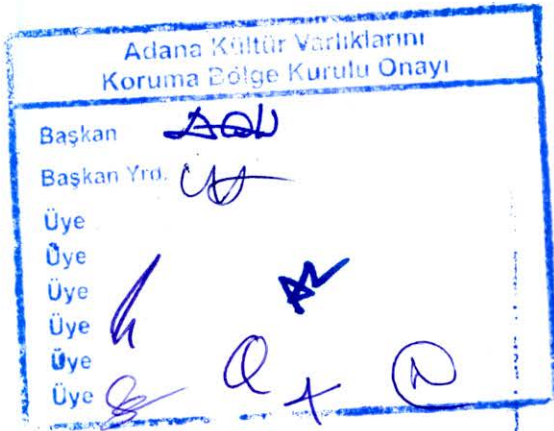 Adana Kültür Varlıklarını
Koruma Bölge Kurulu Onayı
Başkan
Başkan Yrd.
Üye
Üye
Üye
Üye
Üye
Üye